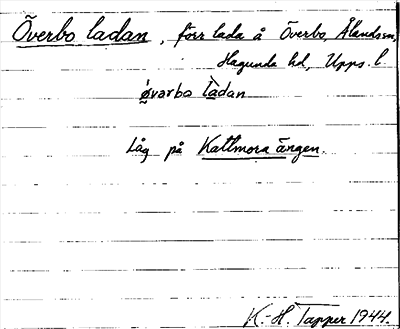 Överbo ladan, förr lada å Överbo, Ålandsn,
Hagunda hd, Upps. l.
øvarbo ladan
Låg på Kattmora ängen.
K.-H. Tapper 1944.